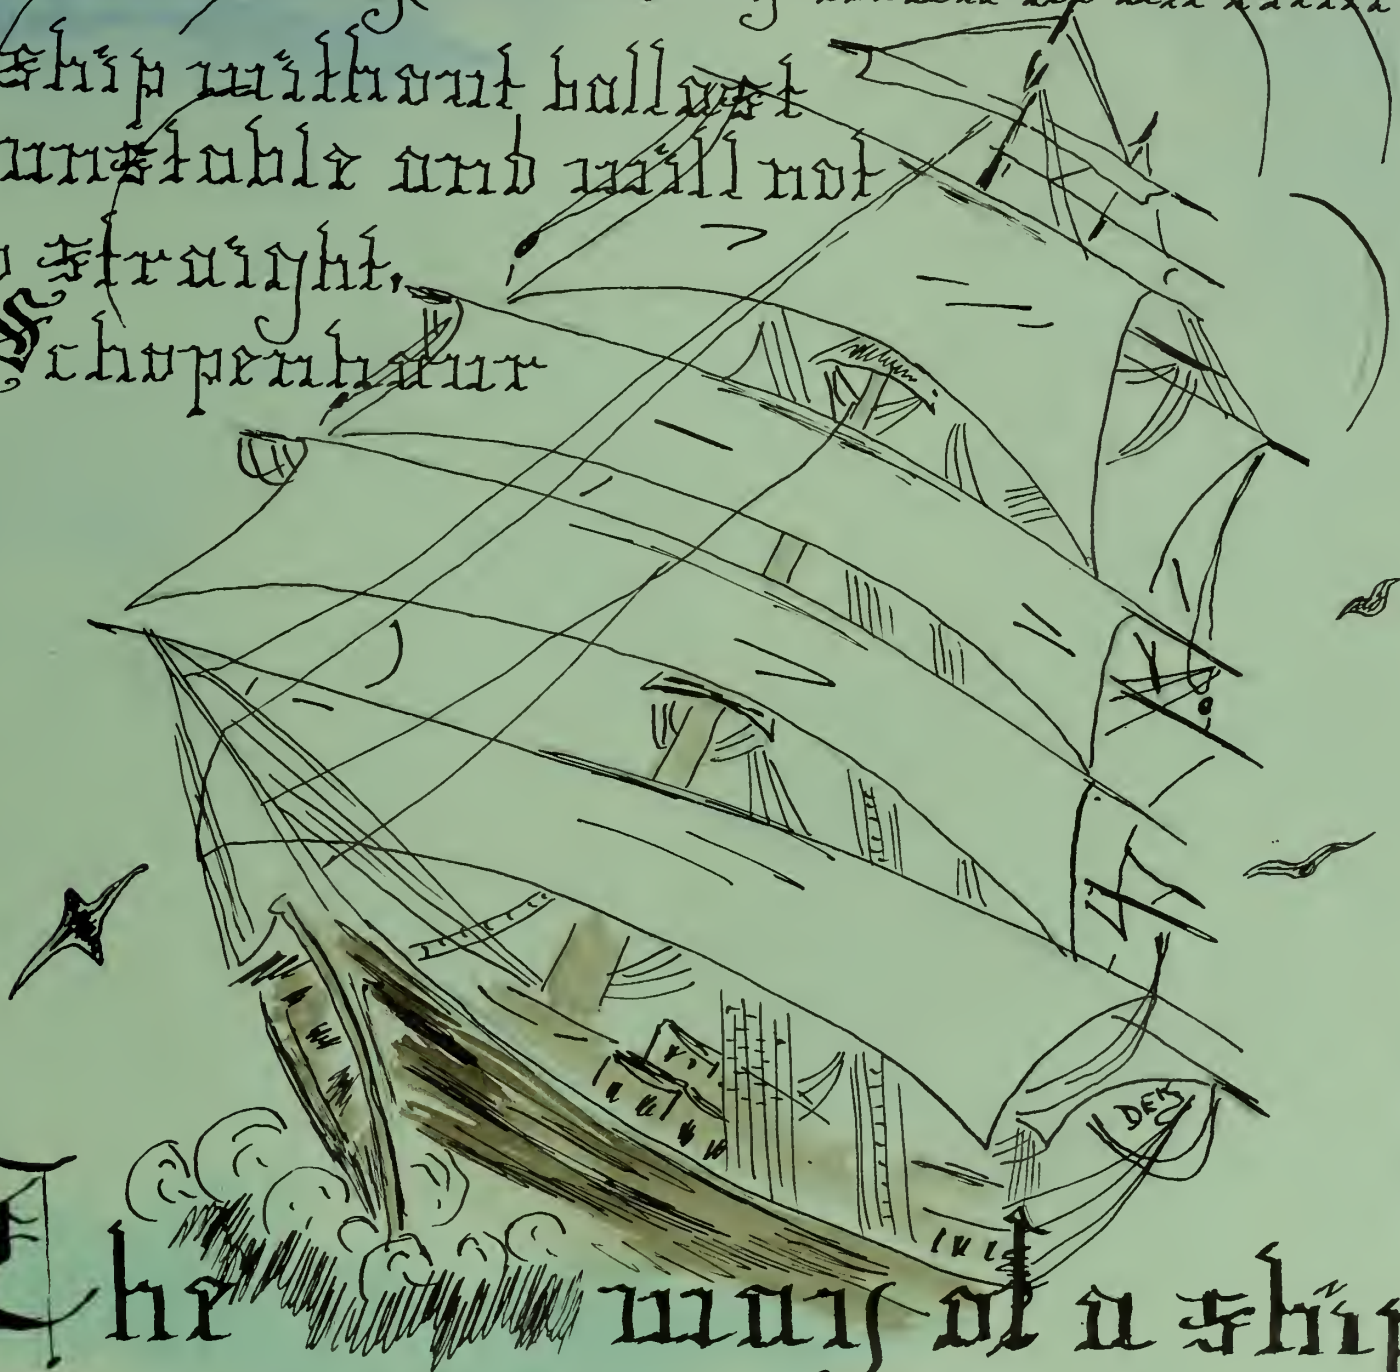 ship without ballast
unstable and will not
straight.
Schopenhaur
DEK
The way of a ship